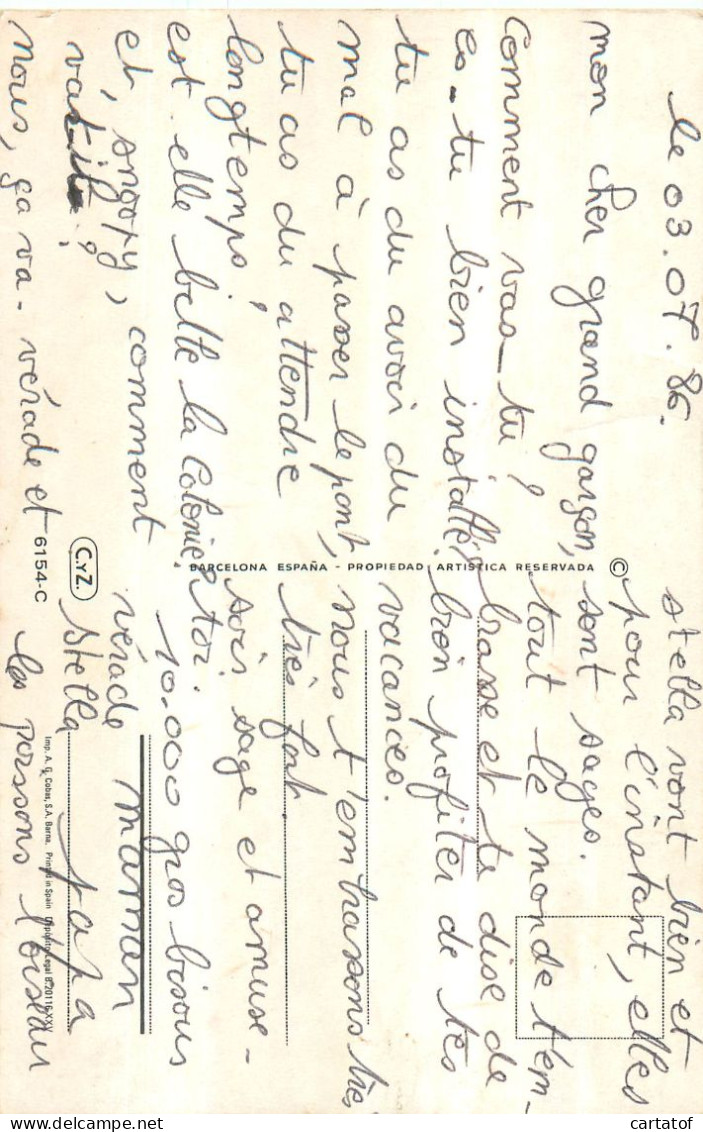 le 03.07.86.
mon cher grand garçon,
Comment vas-tu?
es-tu bien installé?
tu as du avoir du
mal à passer le pont,
tu as du attendre
longtemps,
est elle belle la Colonie?
et, angory, comment
vatil?
nous, ça va. vérade et
stella vont bien et
pour l'instant, elles
sont sages.
tout le monde t'em-
brasse et te dise de
bien profiter de tes
vacances.
nous t'embrassons très
très fort.
sois sage et amuse-
toi.
10.000 gros bisous
vérade maman
Stella papa
les poissons l'oiseau
BARCELONA ESPAÑA - PROPIEDAD ARTISTICA RESERVADA ©
C.YZ.
6154-C
Imp. A. G. Cobas, S.A. Barna. Printed in Spain Depósito Legal B. 20116-XXV
cartatof